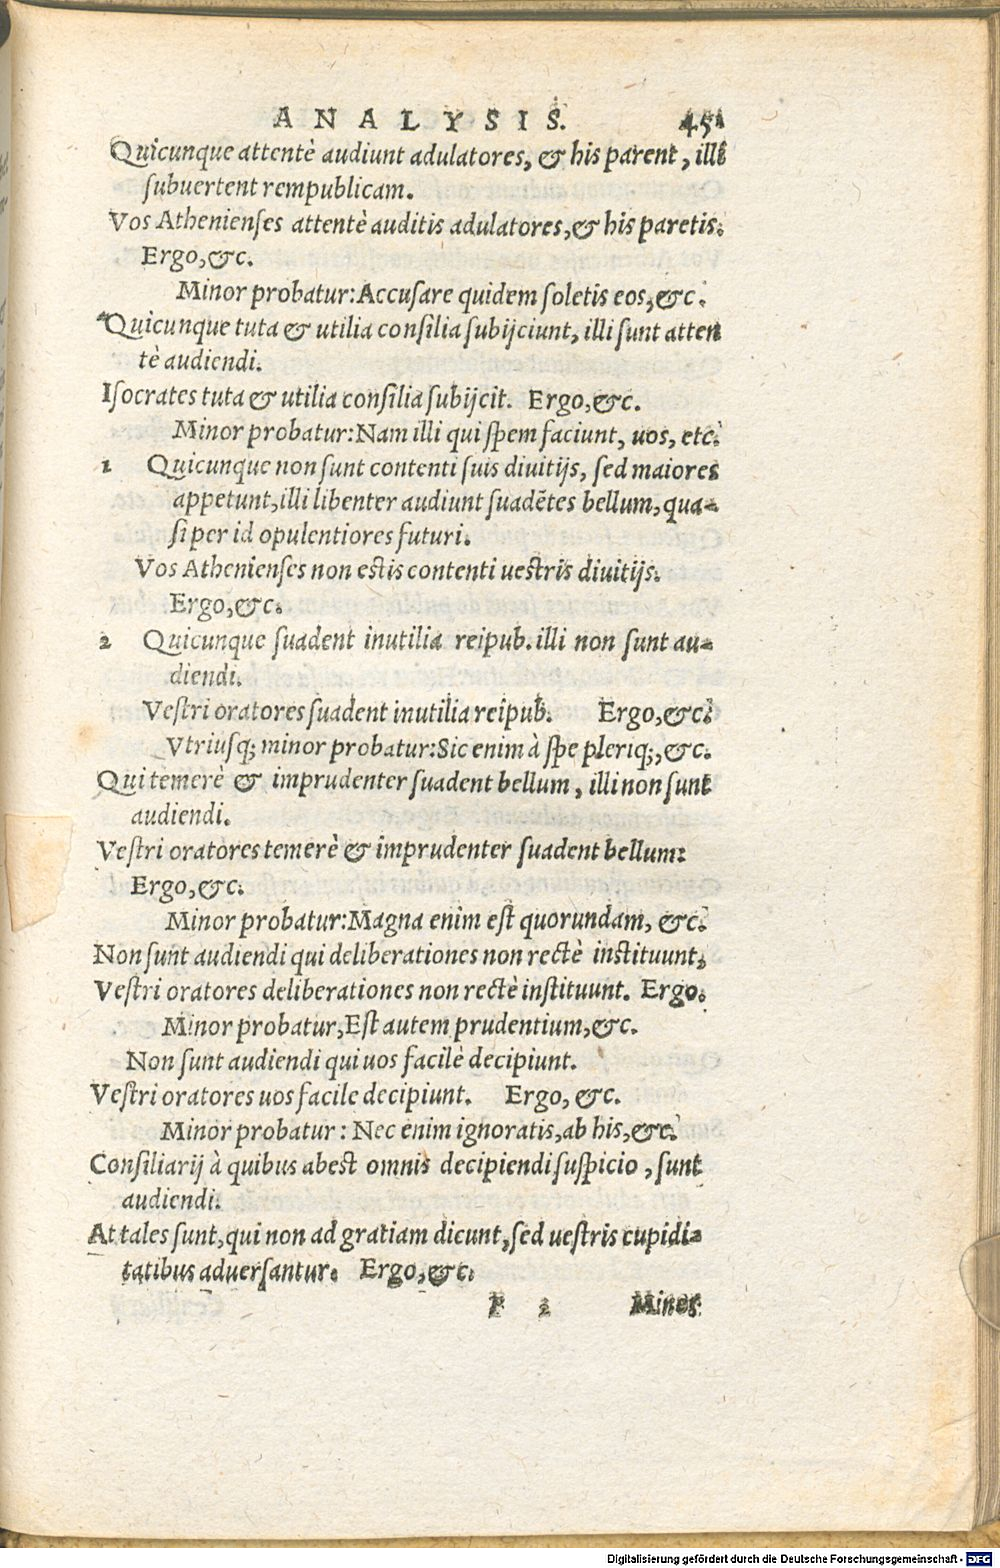 ANALYSIS. 451
Quicunque attentè audiunt adulatores, & his parent, illi
subuertent rempublicam.
Vos Athenienses attentè auditis adulatores, & his paretis.
Ergo, &c.
Minor probatur: Accusare quidem soletis eos, &c.
Quicunque tuta & utilia consilia subijciunt, illi sunt atten
tè audiendi.
Isocrates tuta & utilia consilia subijcit. Ergo, &c.
Minor probatur: Nam illi qui spem faciunt, uos, etc.
1 Quicunque non sunt contenti suis diuitijs, sed maiores
appetunt, illi libenter audiunt suadẽtes bellum, qua-
si per id opulentiores futuri.
Vos Athenienses non estis contenti uestris diuitijs.
Ergo, &c.
2 Quicunque suadent inutilia reipub. illi non sunt au-
diendi.
Vestri oratores suadent inutilia reipub. Ergo, &c.
Vtriusq; minor probatur: Sic enim à spe pleriq;, &c.
Qui temerè & imprudenter suadent bellum, illi non sunt
audiendi.
Vestri oratores temerè & imprudenter suadent bellum:
Ergo, &c.
Minor probatur: Magna enim est quorundam, &c.
Non sunt audiendi qui deliberationes non rectè instituunt,
Vestri oratores deliberationes non rectè instituunt. Ergo.
Minor probatur, Est autem prudentium, &c.
Non sunt audiendi qui uos facilè decipiunt.
Vestri oratores uos facile decipiunt. Ergo, &c.
Minor probatur: Nec enim ignoratis, ab his, &c.
Consiliarij à quibus abest omnis decipiendi suspicio, sunt
audiendi.
At tales sunt, qui non ad gratiam dicunt, sed uestris cupidi-
tatibus aduersantur. Ergo, &c.
P 2 Minor
Digitalisierung gefördert durch die Deutsche Forschungsgemeinschaft - DFG